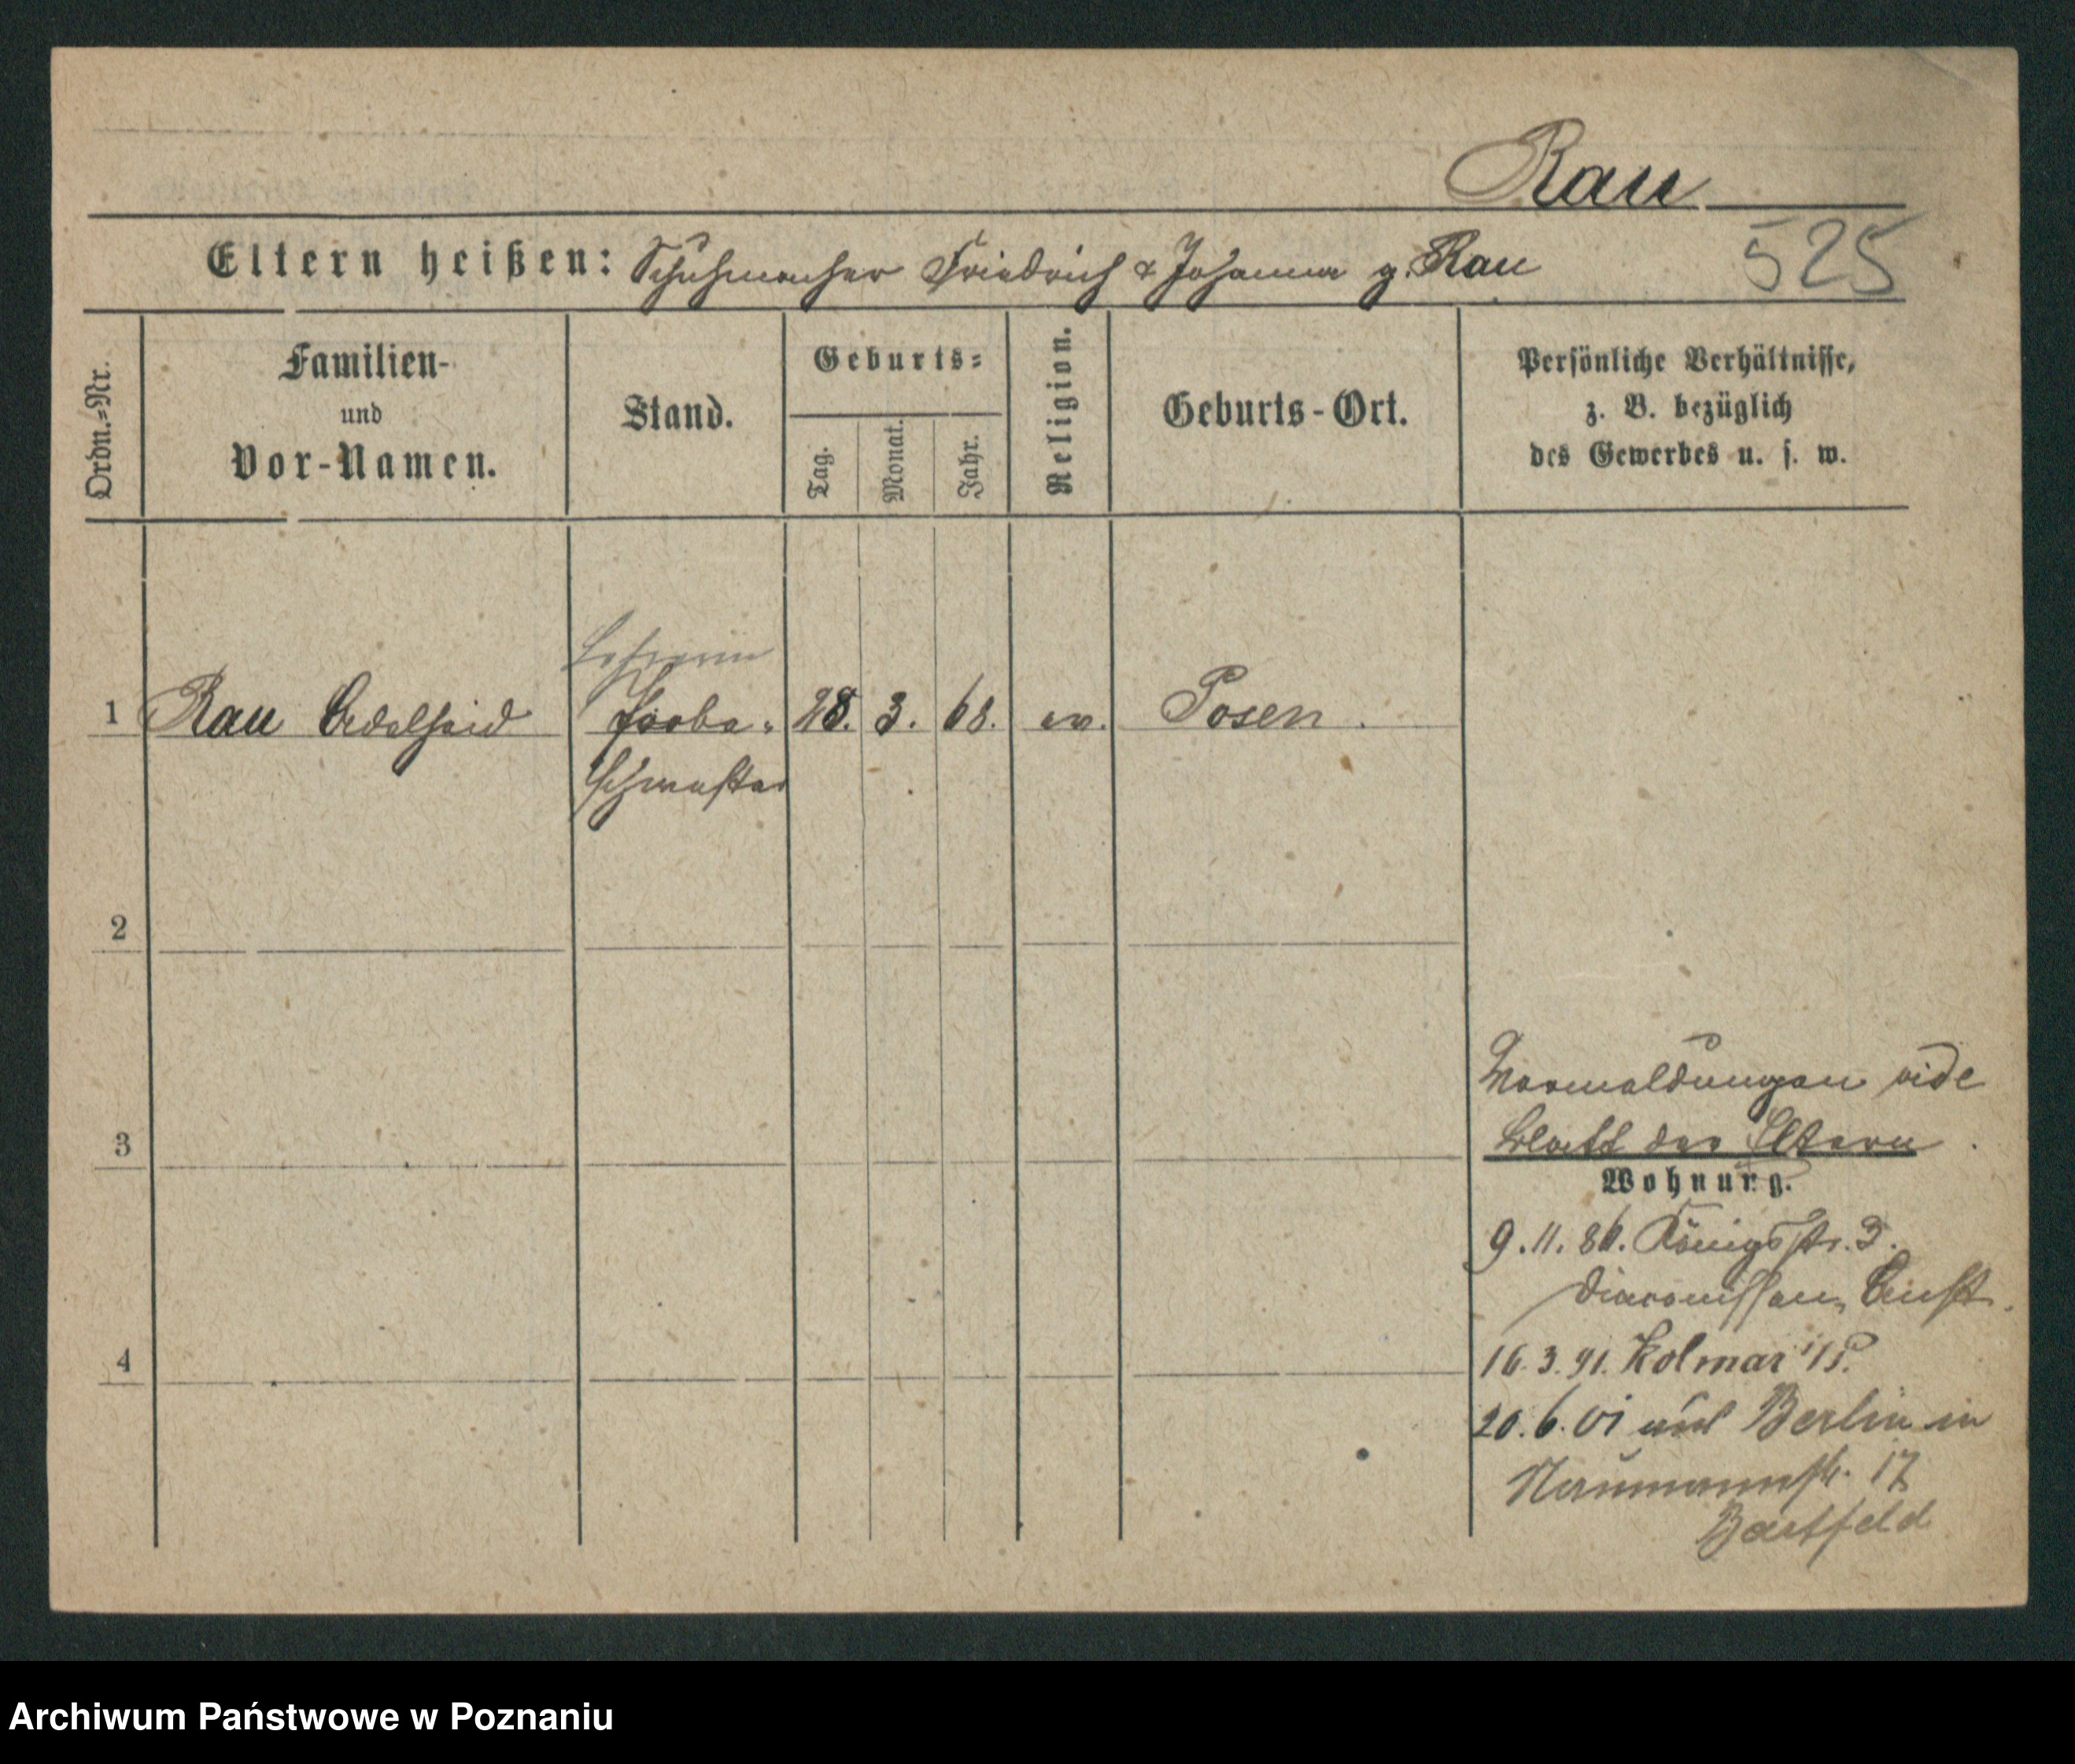 Rau
525
Eltern heißen: Schuhmacher Friedrich & Johanna g. Rau
Ordn.=Nr.
Familien-
und
Vor-Namen.
Stand.
Geburts=
Tag.
Monat.
Jahr.
Religion.
Geburts-Ort.
Persönliche Verhältnisse,
z. B. bezüglich
des Gewerbes u. s. w.
Lehrerin
1 Rau Adelheid Probe= 28. 3. 68. ev. Posen.
schwester
2
3
4
Vormeldungen vide
Blatt der Eltern.
Wohnung.
9.11.86. Königsstr. 3.
Diaconissen Anst.
16.3.91. Kolmar i/P.
20.6.01 Berlin in
Naumannstr. 17
Bartfeld
Archiwum Państwowe w Poznaniu